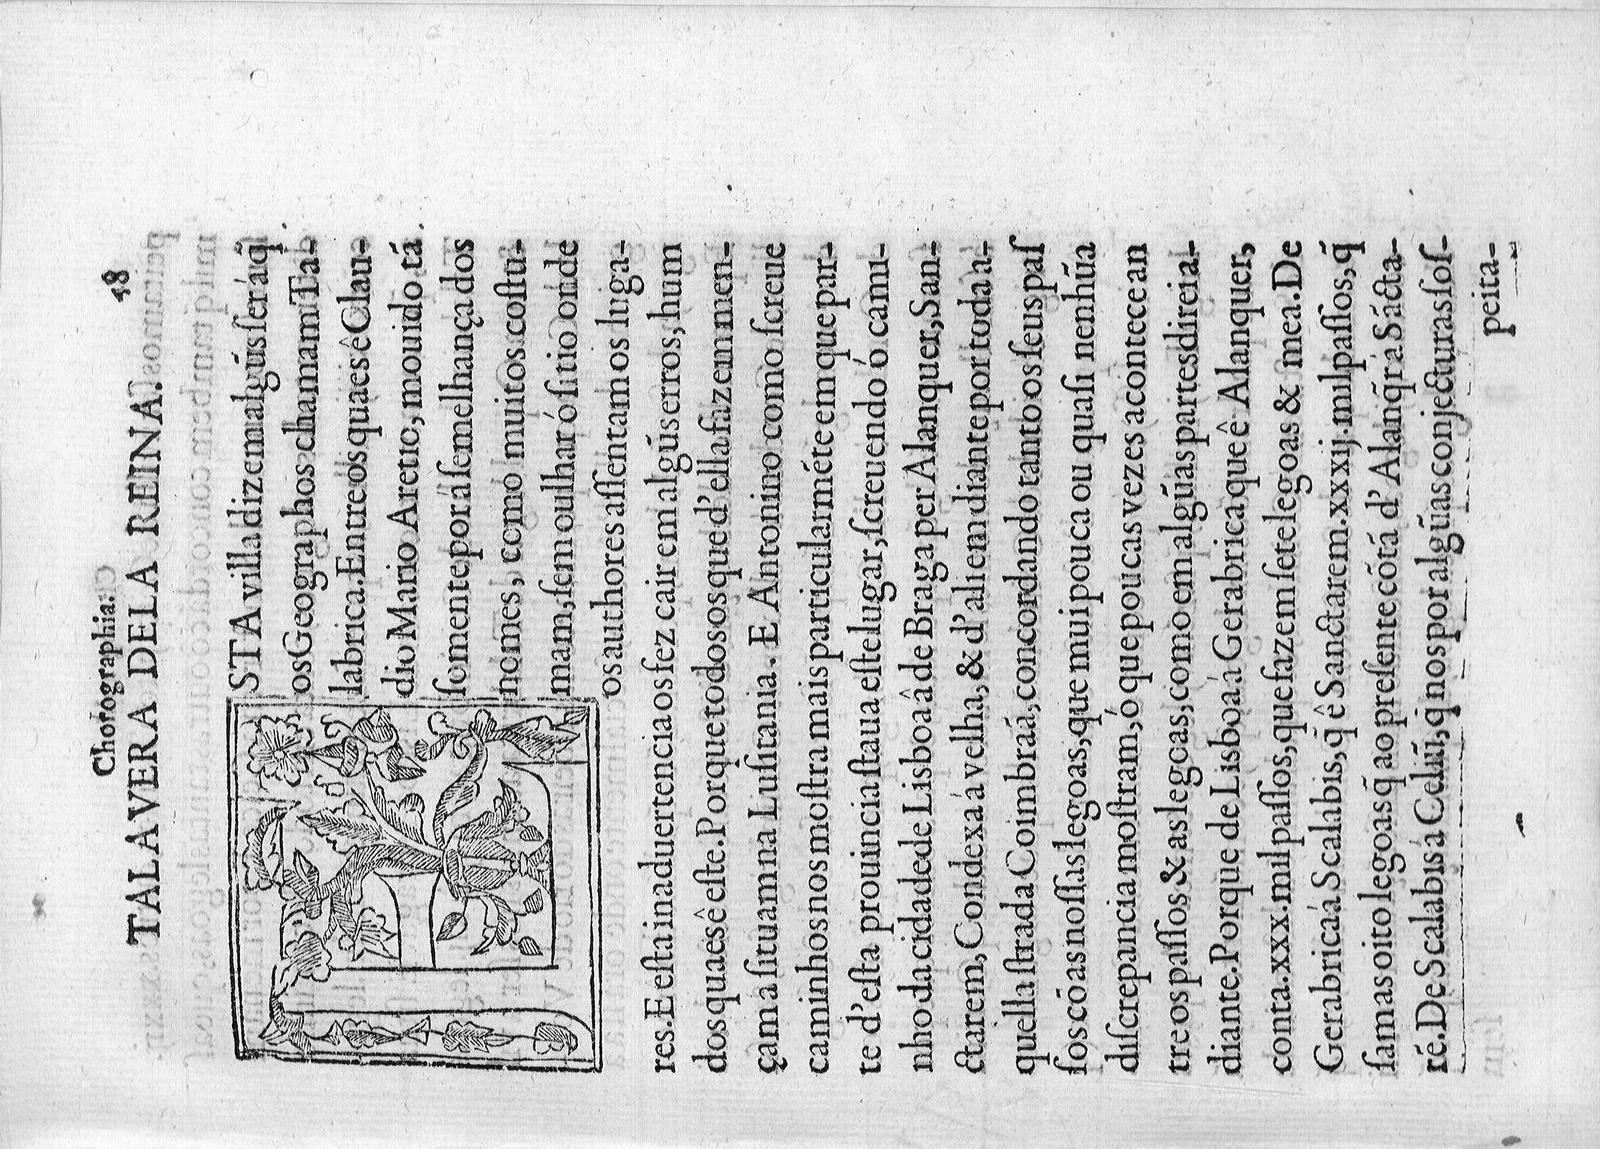 Chorographia. 48
TALAVERA DELA REINA.
ESTA villa dizem algũs ser á q̃
os Geographos chamam Ta-
labrica. Entre os quaes ê Clau-
dio Mario Aretio, mouido tá
ſomente por á ſemelhança dos
nomes, como muitos coſtu-
mam, ſem oulhar ó ſitio onde
os authores aſſentam os luga-
res. E eſta inaduertencia os fez cair em algũs erros, hum
dos quaes ê eſte. Porque todos os que d'ella fazem men-
çam a ſituam na Luſitania. E Antonino como ſcreue
caminhos nos moſtra mais particularméte em que par-
te d'eſta prouincia ſtaua eſte lugar, ſcreuendo ó cami-
nho da cidade de Lisboa â de Braga per Alanquer, San-
ctarem, Condexa á velha, & d'aliem diante por toda a-
quella ſtrada Coimbraá, concordando tanto os ſeus paſ
ſos có as noſſas legoas, que mui pouca ou quaſi nenhũa
diſcrepancia moſtram, ó que poucas vezes acontece an
tre os paſſos & as legoas, como em algũas partes direi a-
diante. Porque de Lisboa á Gerabrica que ê Alanquer,
conta .xxx. mil paſſos, que fazem ſete legoas & mea. De
Gerabrica á Scalabis, q̃ ê Sanctarem .xxxij. mil paſſos, q̃
ſam as oito legoas q̃ ao preſente cõtã d'Alanq̃r á Sácta-
ré. De Scalabis á Celiũ, q̃ nos por algũas conjecturas ſoſ-
peita-